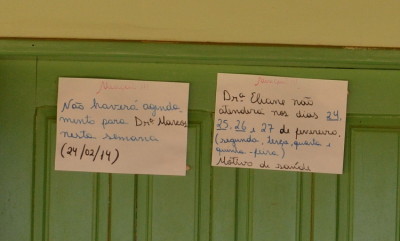 Não haverá agenda
mento para Drº Marcos
nesta semana
(24/02/14)
Drª Eliane não
atenderá nos dias 24,
25, 26 e 27 de fevereiro.
(segunda, terça, quarta e
quinta-feira)
Motivo de saúde